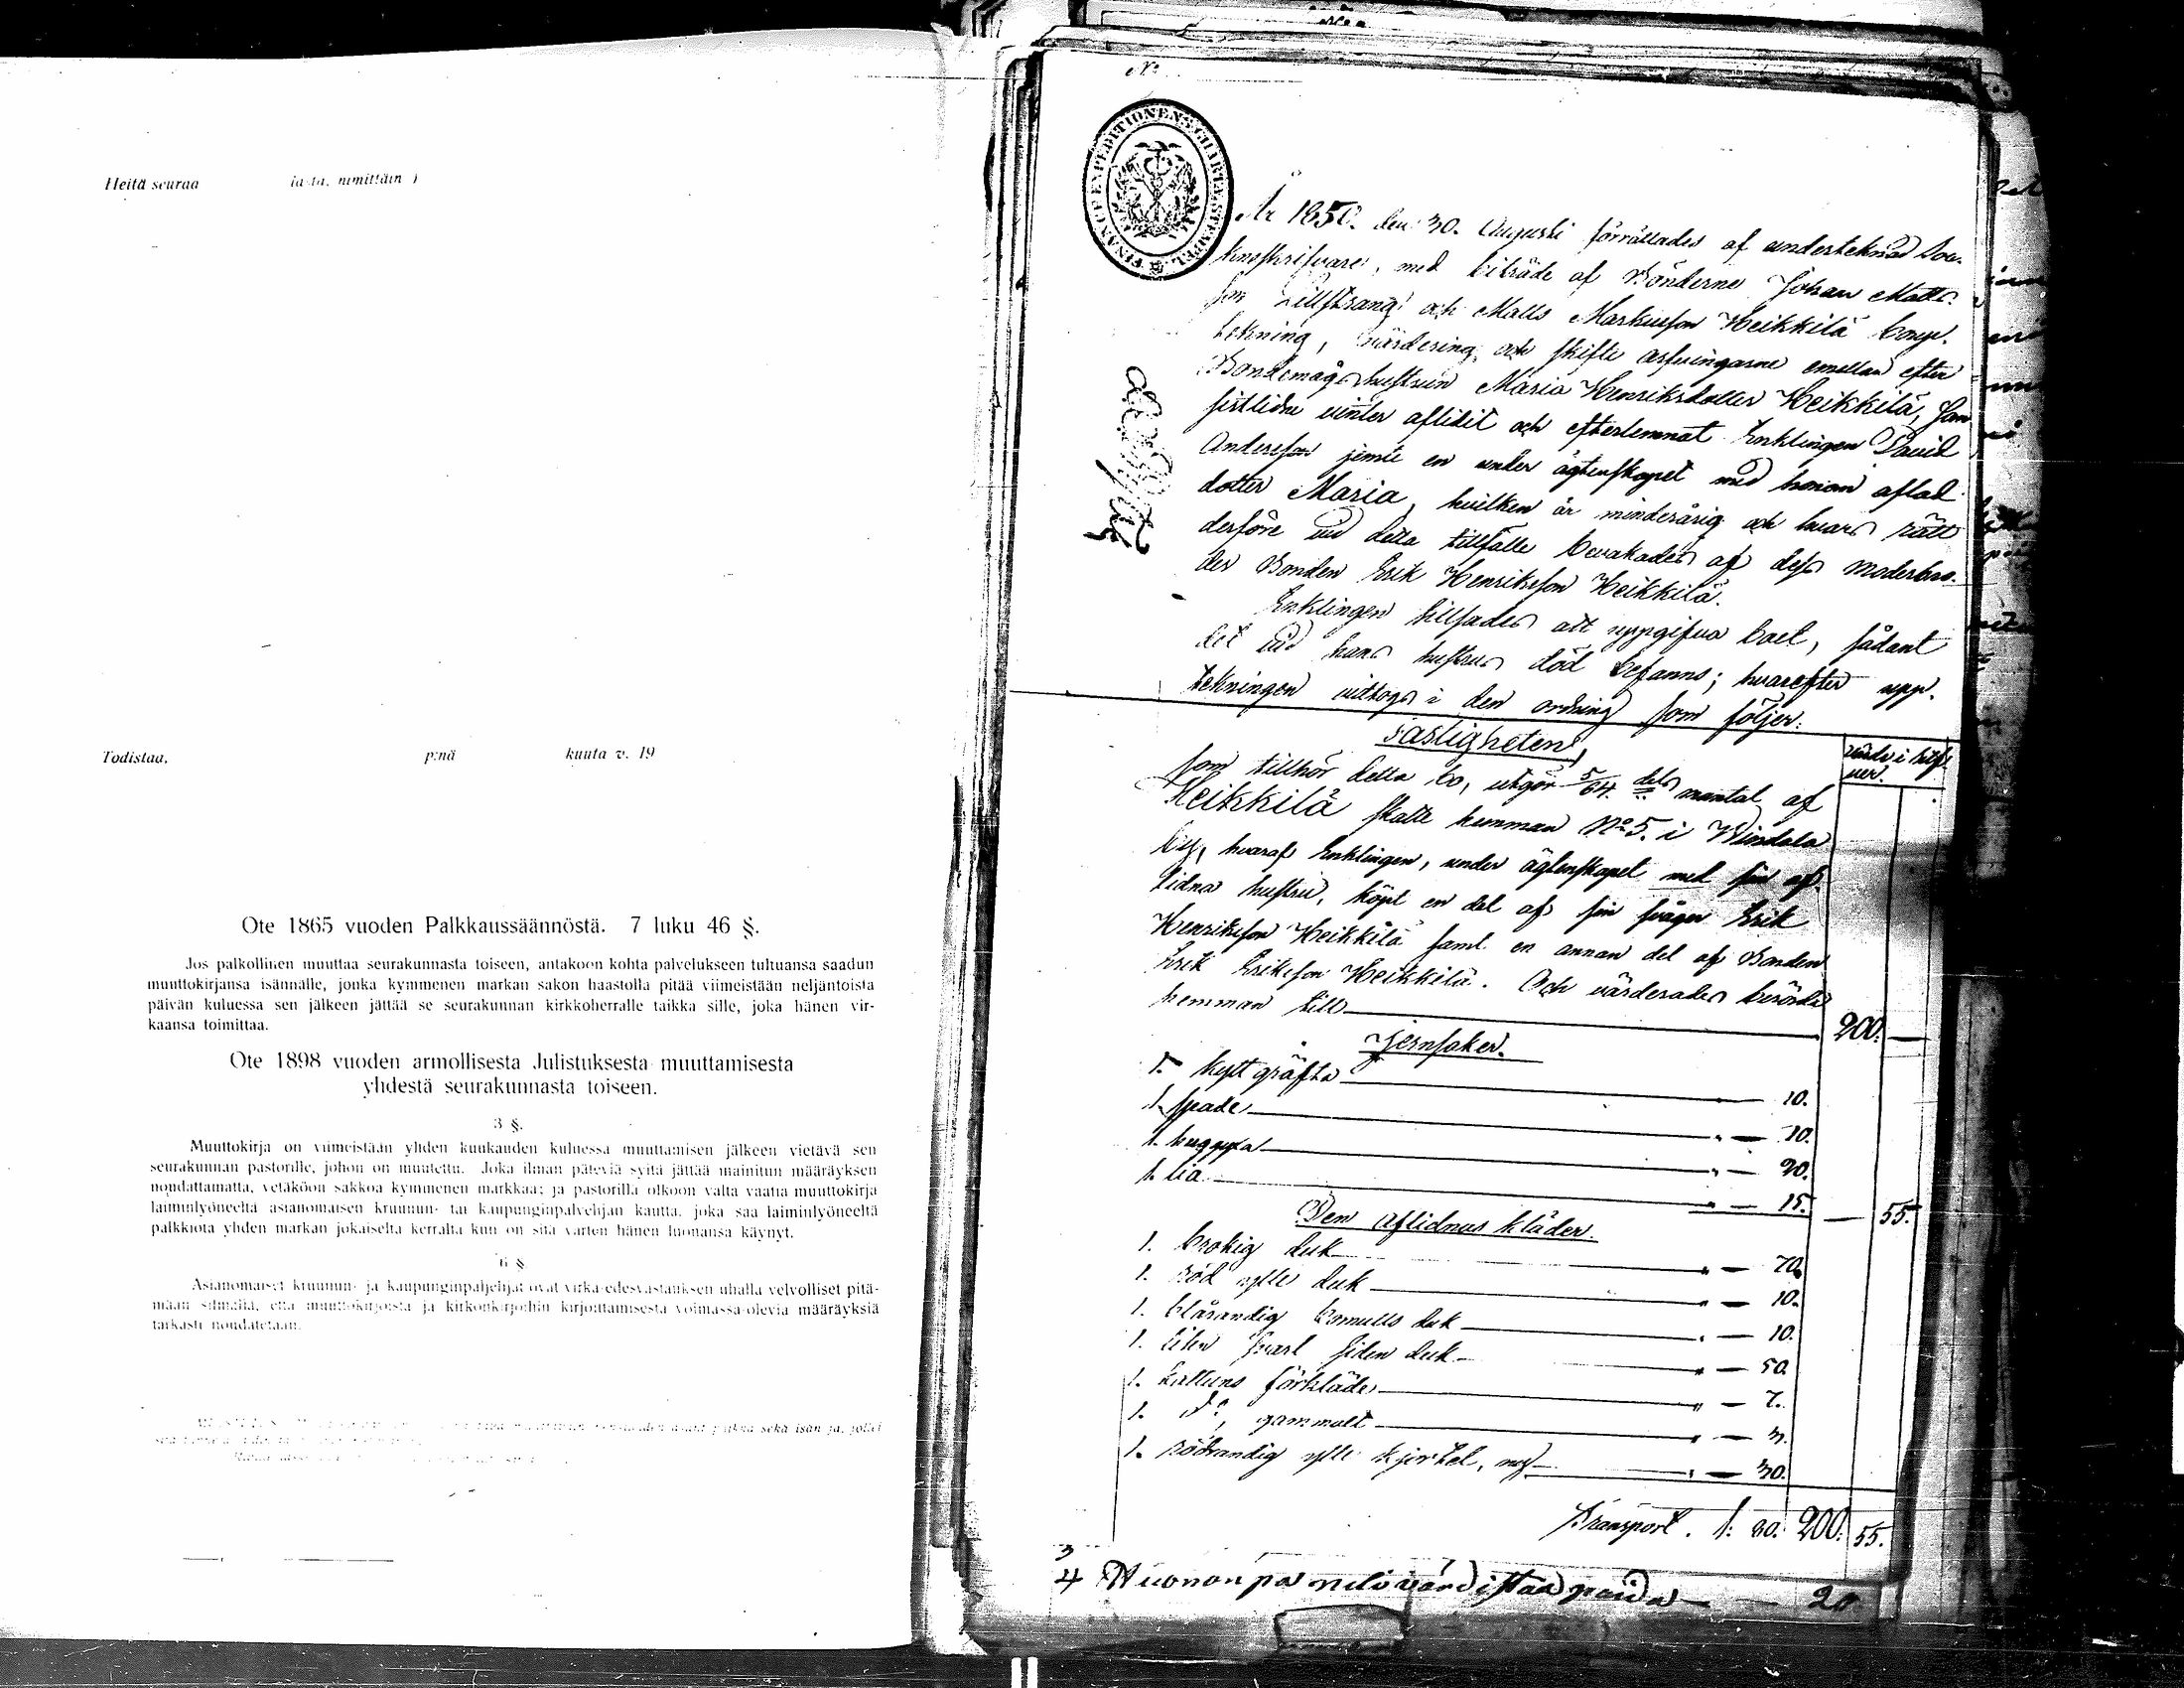 Heitä seuraa iasta, nimittäin )
Todistaa, p:nä kuuta v. 19
Ote 1865 vuoden Palkkaussäännöstä. 7 luku 46 §.
Jos palkollinen muuttaa seurakunnasta toiseen, antakoon kohta palvelukseen tultuansa saadun
muuttokirjansa isännälle, jonka kymmenen markan sakon haastolla pitää viimeistään neljäntoista
päivän kuluessa sen jälkeen jättää se seurakunnan kirkkoherralle taikka sille, joka hänen vir-
kaansa toimittaa.
Ote 1898 vuoden armollisesta Julistuksesta muuttamisesta
yhdestä seurakunnasta toiseen.
3 §.
Muuttokirja on viimeistään yhden kuukauden kuluessa muuttamisen jälkeen vietävä sen
seurakunnan pastorille, johon on muutettu. Joka ilman päteviä syitä jättää mainitun määräyksen
noudattamatta, vetäköön sakkoa kymmenen markkaa; ja pastorilla olkoon valta vaatia muuttokirja
laiminlyöneeltä asianomaisen kruunun- tai kaupunginpalvelijan kautta, joka saa laiminlyöneeltä
palkkiota yhden markan jokaiselta kerralta kun on sitä varten hänen luonansa käynyt.
6 §
Asianomaiset kruunun- ja kaupunginpalvelijat ovat virka-edesvastauksen uhalla velvolliset pitä-
mään silmällä, että muuttokirjoista ja kirkonkirjoihin kirjoittamisesta voimassa olevia määräyksiä
tarkasti noudatetaan.
sekä isän ja, jollei
No
FINANCE EXPEDITIONENS CHARTÆ STEMPEL
År 1850. den 30. Augusti förrättades af undertecknad Soc-
knskrifvare, med biträde af Bönderne Johan Matts-
son Lillstrang och Matts Markusson Heikkilä boupp-
tekning, värdering och skifte arfvingarne emellan efter
Bondemågshustrun Maria Henriksdotter Heikkilä, som
sistlidne vinter aflidit och efterlemnat Enklingen David
Andersson jemte en under ägtenskapet med honom aflad
dotter Maria, hvilken är minderårig och hvars rätt
derföre vid detta tillfälle bevakades af dess moderbro-
der Bonden Erik Henriksson Heikkilä.
Enklingen tillsades att uppgifva boet, sådant
det vid hans hustrus död befanns; hvarefter upp-
tekningen vidtogs i den ordning som följer:
Fastigheten, värde i silf-
ver.
som tillhör detta bo, utgör 5/64 dels mantal af
Heikkilä skatte hemman No 5. i Windala
by, hvaraf Enklingen, under ägtenskapet med sin af-
lidna hustru, köpt en del af sin svåger Erik
Henriksson Heikkilä samt en annan del af Bonden
Erik Eriksson Heikkilä. Och värderades berörda
hemman till 200. —
Jernsaker.
1. kytt gräfta — 10.
1. spade " — 10.
1. huggyxa " — 20.
1. lia " — 15. — 55.
Den aflidnas kläder.
1. brokig duk " — 70.
1. röd ylle duk " — 10.
1. blårandig bomulls duk " — 10.
1. liten svart siden duk " — 50.
1. kattuns förkläde " — 7.
1. do, gammalt " — 3.
1. rödrandig ylle kjortel, " — 30.
Transport. 1: 80. 200. 55.
3
4 20